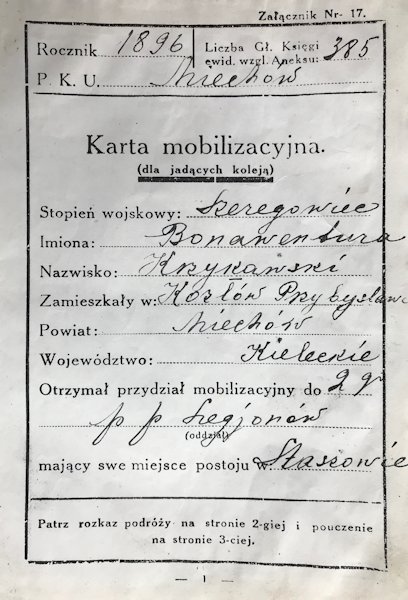 Załącznik Nr- 17.
Rocznik 1896
Liczba Gł. Księgi
ewid. wzgl. Aneksu: 385
P. K. U. Miechów
Karta mobilizacyjna.
(dla jadących koleją)
Stopień wojskowy: szeregowiec
Imiona: Bonawentura
Nazwisko: Krzykawski
Zamieszkały w: Kozłów Przybysław
Powiat: Miechów
Województwo: Kieleckie
Otrzymał przydział mobilizacyjny do 2
p p Legjonów
(oddział)
mający swe miejsce postoju w Staszowie
Patrz rozkaz podróży na stronie 2-giej i pouczenie
na stronie 3-ciej.
— 1 —